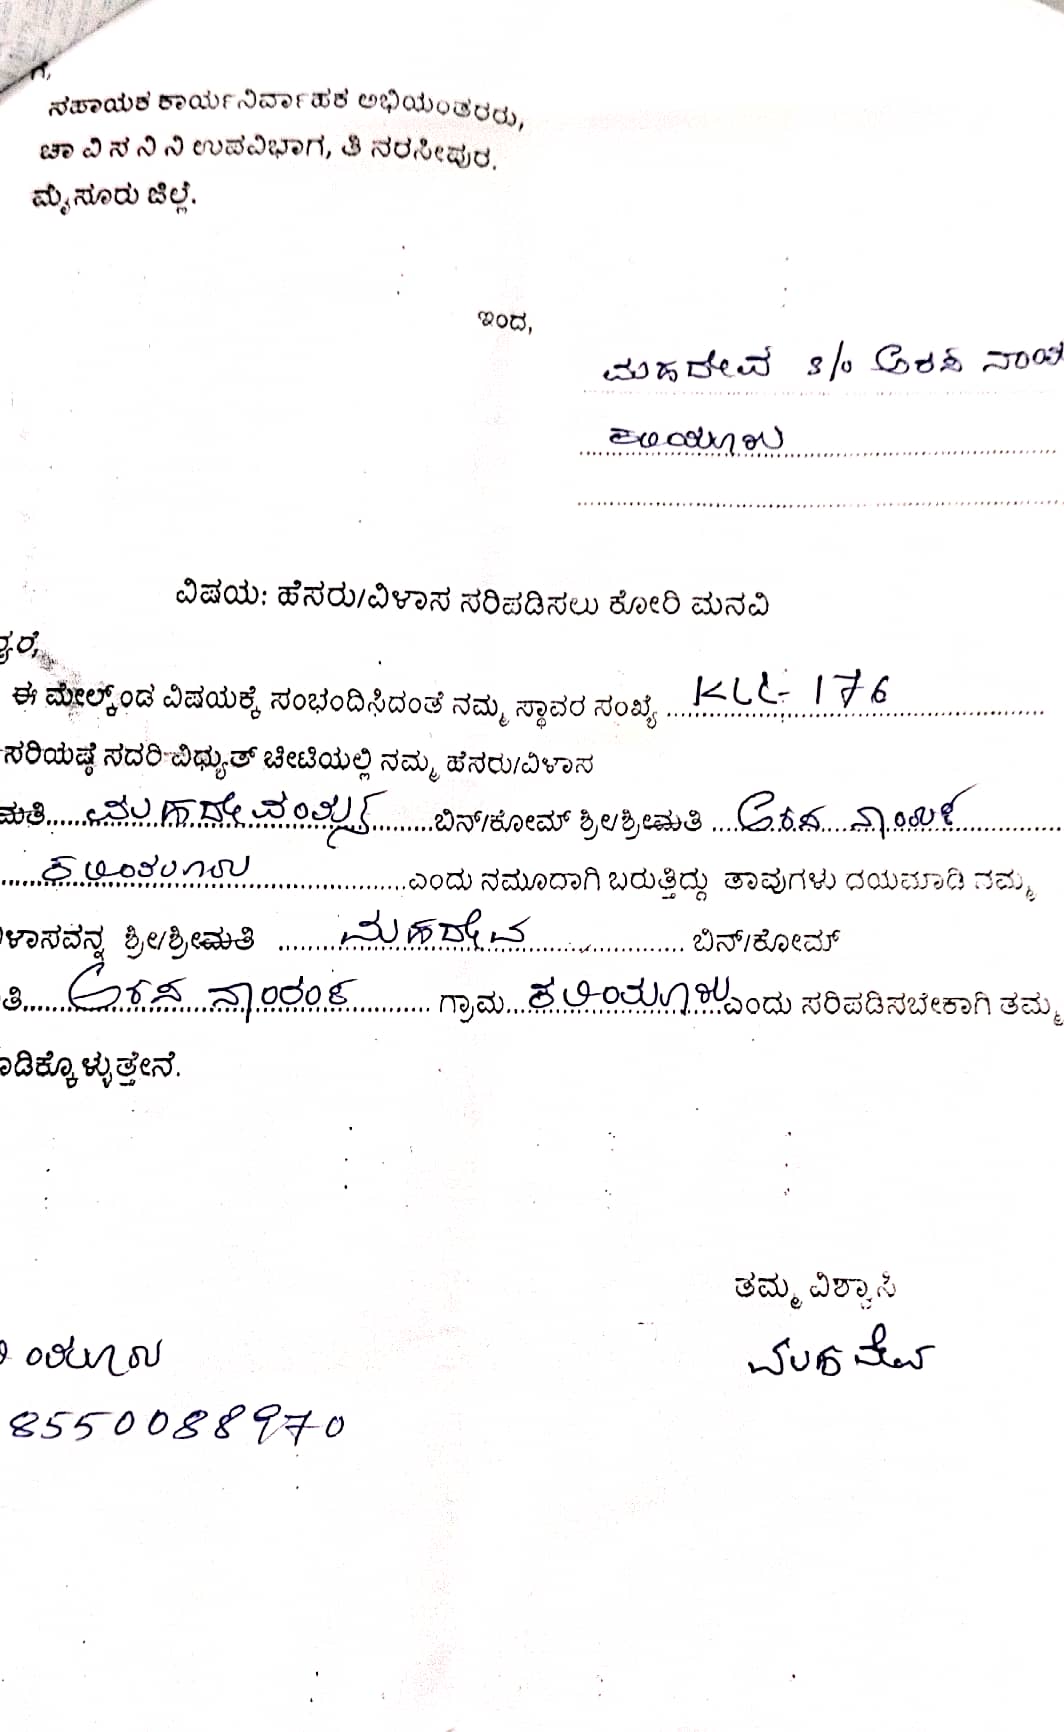 ಗೆ,
ಸಹಾಯಕ ಕಾರ್ಯನಿರ್ವಾಹಕ ಅಭಿಯಂತರರು,
ಚಾ ವಿ ಸ ನಿ ನಿ ಉಪವಿಭಾಗ, ತಿ ನರಸೀಪುರ.
ಮೈಸೂರು ಜಿಲ್ಲೆ.
ಇಂದ,
ಮಹದೇವ S/o ಅರಸ ನಾಯ
ಕಲಿಯೂರು
ವಿಷಯ: ಹೆಸರು/ವಿಳಾಸ ಸರಿಪಡಿಸಲು ಕೋರಿ ಮನವಿ
ಈ ಮೇಲ್ಕಂಡ ವಿಷಯಕ್ಕೆ ಸಂಭಂದಿಸಿದಂತೆ ನಮ್ಮ ಸ್ಥಾವರ ಸಂಖ್ಯೆ KLL-176
ಸರಿಯಷ್ಠೆ ಸದರಿ ವಿಧ್ಯುತ್ ಚೀಟಿಯಲ್ಲಿ ನಮ್ಮ ಹೆಸರು/ವಿಳಾಸ
ಮತಿ ಬಿನ್/ಕೋಮ್ ಶ್ರೀ/ಶ್ರೀಮತಿ ಅರಸ ನಾಯಕ
ಕಲಿಯೂರು ಎಂದು ನಮೂದಾಗಿ ಬರುತ್ತಿದ್ದು ತಾವುಗಳು ದಯಮಾಡಿ ನಮ್ಮ
ಳಾಸವನ್ನ ಶ್ರೀ/ಶ್ರೀಮತಿ ಮಹದೇವ ಬಿನ್/ಕೋಮ್
ತಿ ಅರಸ ನಾಯಕ ಗ್ರಾಮ ಕಲಿಯೂರು ಎಂದು ಸರಿಪಡಿಸಬೇಕಾಗಿ ತಮ್ಮ
ಾಡಿಕ್ಕೊಳ್ಳುತ್ತೇನೆ.
ತಮ್ಮ ವಿಶ್ವಾಸಿ
ಯೂರು
ಮಹದೇವ
8550088970